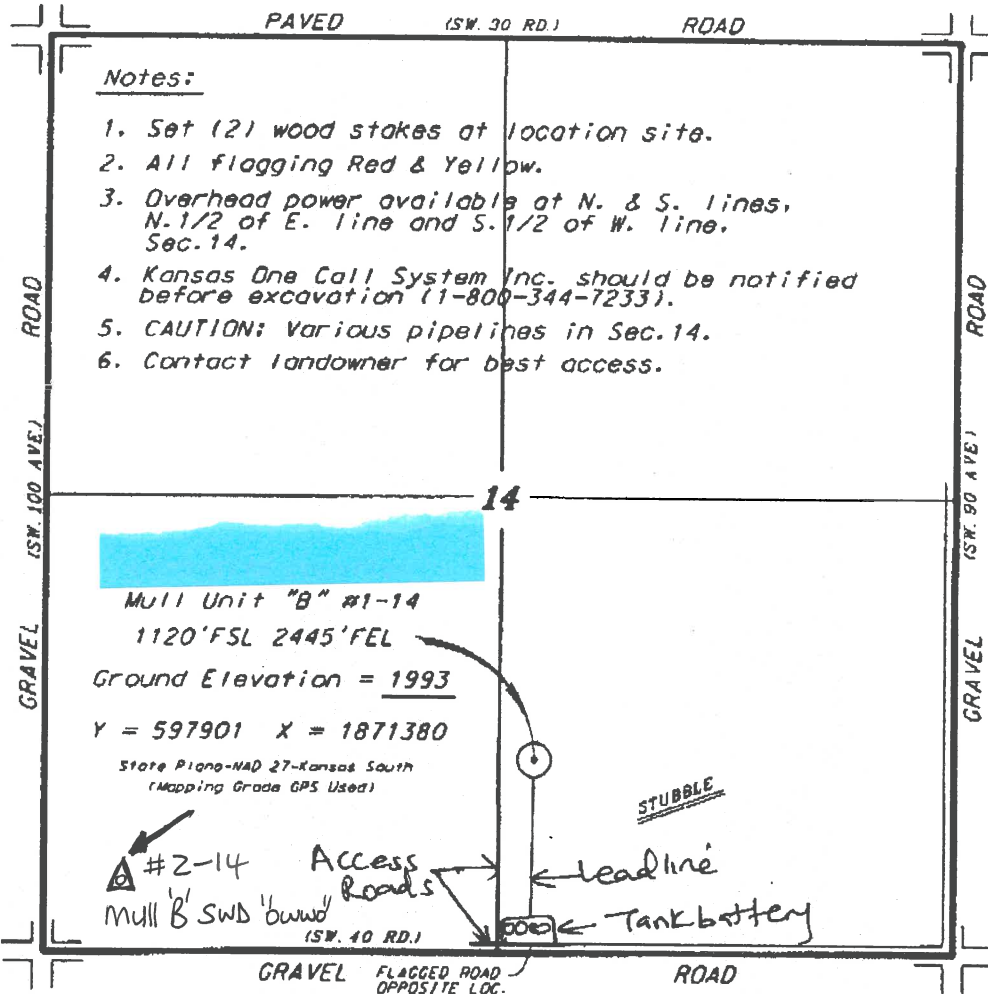 PAVED (SW. 30 RD.) ROAD
Notes:
1. Set (2) wood stakes at location site.
2. All flagging Red & Yellow.
3. Overhead power available at N. & S. lines,
N.1/2 of E. line and S.1/2 of W. line,
Sec.14.
4. Kansas One Call System Inc. should be notified
before excavation (1-800-344-7233).
5. CAUTION: Various pipelines in Sec.14.
6. Contact landowner for best access.
ROAD
(SW. 100 AVE.)
GRAVEL
ROAD
(SW. 90 AVE)
GRAVEL
14
Mull Unit "B" #1-14
1120'FSL 2445'FEL
Ground Elevation = 1993
Y = 597901 X = 1871380
State Plane-NAD 27-Kansas South
(Mapping Grade GPS Used)
STUBBLE
#2-14
Mull 'B' SWD 'owwo'
Access
Roads
Leadline
Tankbattery
(SW. 40 RD.)
GRAVEL FLAGGED ROAD ROAD
OPPOSITE LOC.